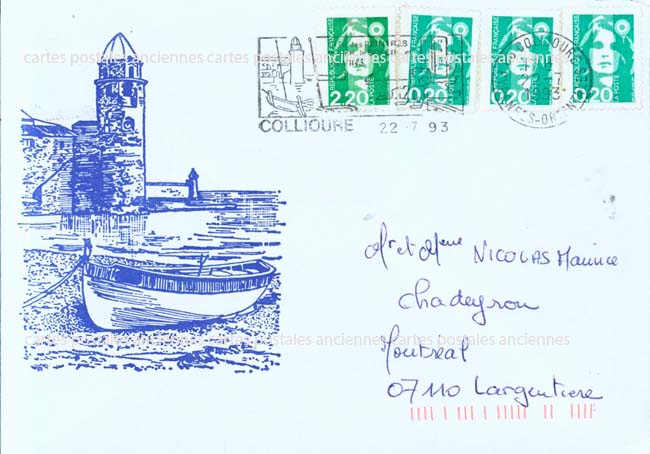 RÉPUBLIQUE FRANÇAISE
2,20 LA POSTE
RÉPUBLIQUE FRANÇAISE
0,20
RÉPUBLIQUE FRANÇAISE
0,20
RÉPUBLIQUE FRANÇAISE
0,20 LA POSTE
COLLIOURE
22-7 93
1993
cartes postales anciennes cartes postales anciennes cartes postales anciennes
Mr et Mme NICOLAS Maurice
Chadeyron
Montreal
07110 Largentiere
cartes postales anciennes
cartes postales anciennes
cartes postales anciennes